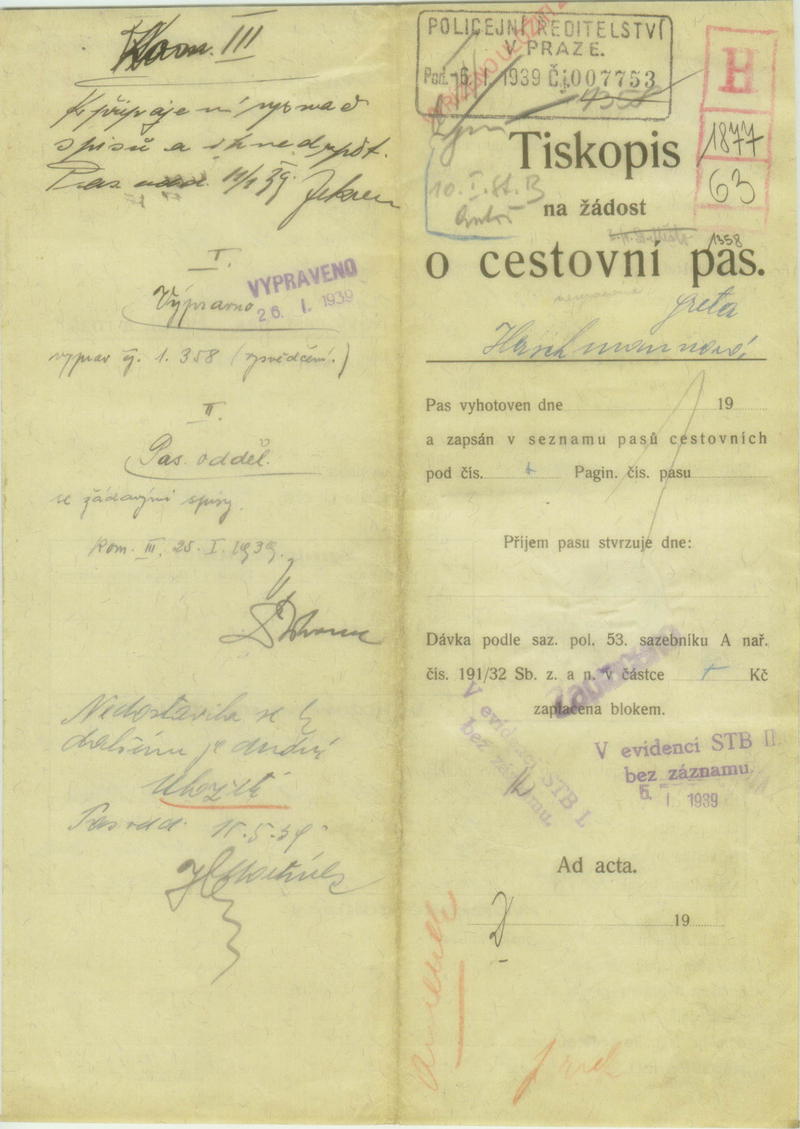 Kom. III
K připojení
spisů a ihned zpět.
Pas. 11/1 39.
I.
Výpravno
VYPRAVENO
26. I. 1939
vyprav čj. 1.358 (vysvědčení.)
II.
Pas. odděl.
se žádanými spisy.
Kom. III. 25. I. 1939.
Nedostavila se k
dalšímu jednání
Uložit
Pas. odd. 11.5.39
POLICEJNÍ ŘEDITELSTVÍ
V PRAZE.
Pod. -5. I. 1939 Č.j. 007753
H
1877
63
10. I. St. B
Tiskopis
na žádost
1358
o cestovní pas.
Greta
Hirschmannová
Pas vyhotoven dne 19
a zapsán v seznamu pasů cestovních
pod čís. Pagin. čís. pasu
Příjem pasu stvrzuje dne:
Dávka podle saz. pol. 53. sazebníku A nař.
čís. 191/32 Sb. z. a n. v částce Kč
zaplacena blokem.
V evidenci STB I.
bez záznamu.
V evidenci STB II.
bez záznamu.
5. I 1939
Ad acta.
19